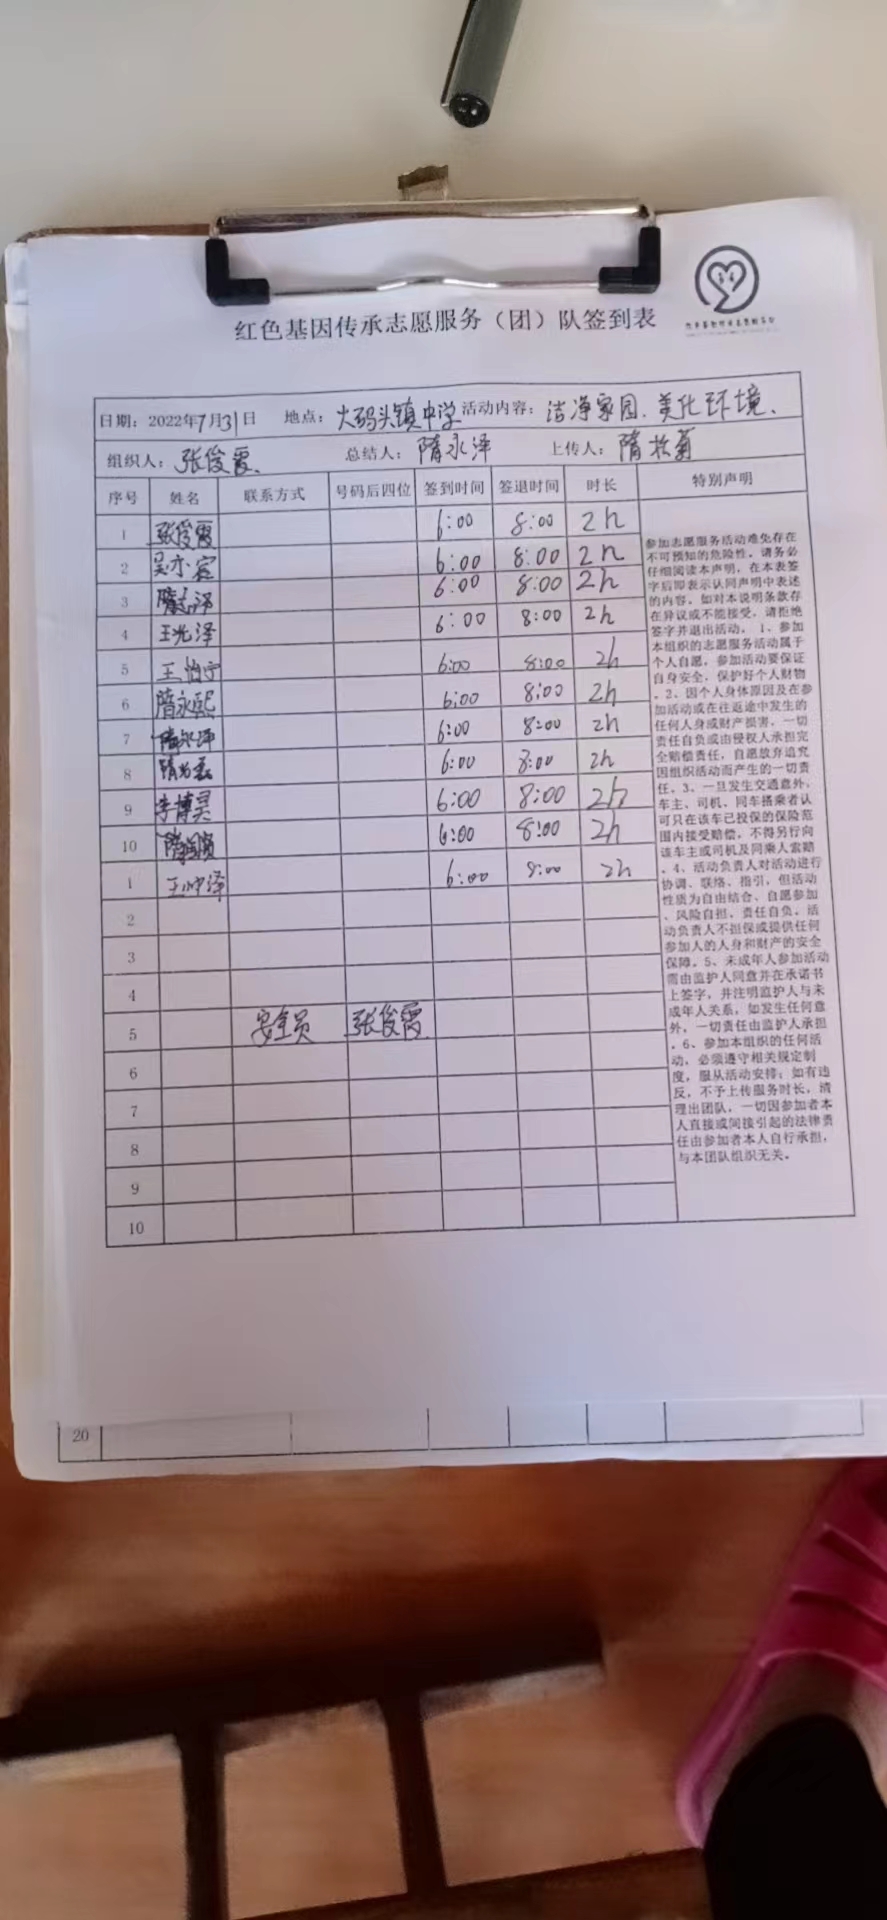 红色基因传承志愿服务（团）队签到表
日期：2022年7月31日 地点：大码头镇中学 活动内容：洁净家园、美化环境、
组织人：张俊霞 总结人：隋永泽 上传人：隋
序号 姓名 联系方式 号码后四位 签到时间 签退时间 时长 特别声明
1 张俊霞 6:00 8:00 2h
2 吴亦 6:00 8:00 2h
3 隋 6:00 8:00 2h
4 王光泽 6:00 8:00 2h
5 王怡宁 6:00 8:00 2h
6 隋永熙 6:00 8:00 2h
7 隋永泽 6:00 8:00 2h
8 隋 6:00 8:00 2h
9 李博昊 6:00 8:00 2h
10 隋 6:00 8:00 2h
1 王坤泽 6:00 8:00 2h
2
3
4
5 安全员 张俊霞
6
7
8
9
10
参加志愿服务活动难免存在
不可预知的危险性。请务必
仔细阅读本声明，在本表签
字后即表示认同声明中表述
的内容。如对本说明条款存
在异议或不能接受，请拒绝
签字并退出活动。1、参加
本组织的志愿服务活动属于
个人自愿，参加活动要保证
自身安全，保护好个人财物
。2、因个人身体原因及在参
加活动或在往返途中发生的
任何人身或财产损害，一切
责任自负或由侵权人承担完
全赔偿责任，自愿放弃追究
因组织活动而产生的一切责
任。3、一旦发生交通意外，
车主、司机、同车搭乘者认
可只在该车已投保的保险范
围内接受赔偿，不得另行向
该车主或司机及同乘人索赔
。4、活动负责人对活动进行
协调、联络、指引，但活动
性质为自由结合、自愿参加
、风险自担，责任自负。活
动负责人不担保或提供任何
参加人的人身和财产的安全
保障。5、未成年人参加活动
需由监护人同意并在承诺书
上签字，并注明监护人与未
成年人关系，如发生任何意
外，一切责任由监护人承担
。6、参加本组织的任何活
动，必须遵守相关规定制
度，服从活动安排；如有违
反，不予上传服务时长，清
理出团队，一切因参加者本
人直接或间接引起的法律责
任由参加者本人自行承担，
与本团队组织无关。
20